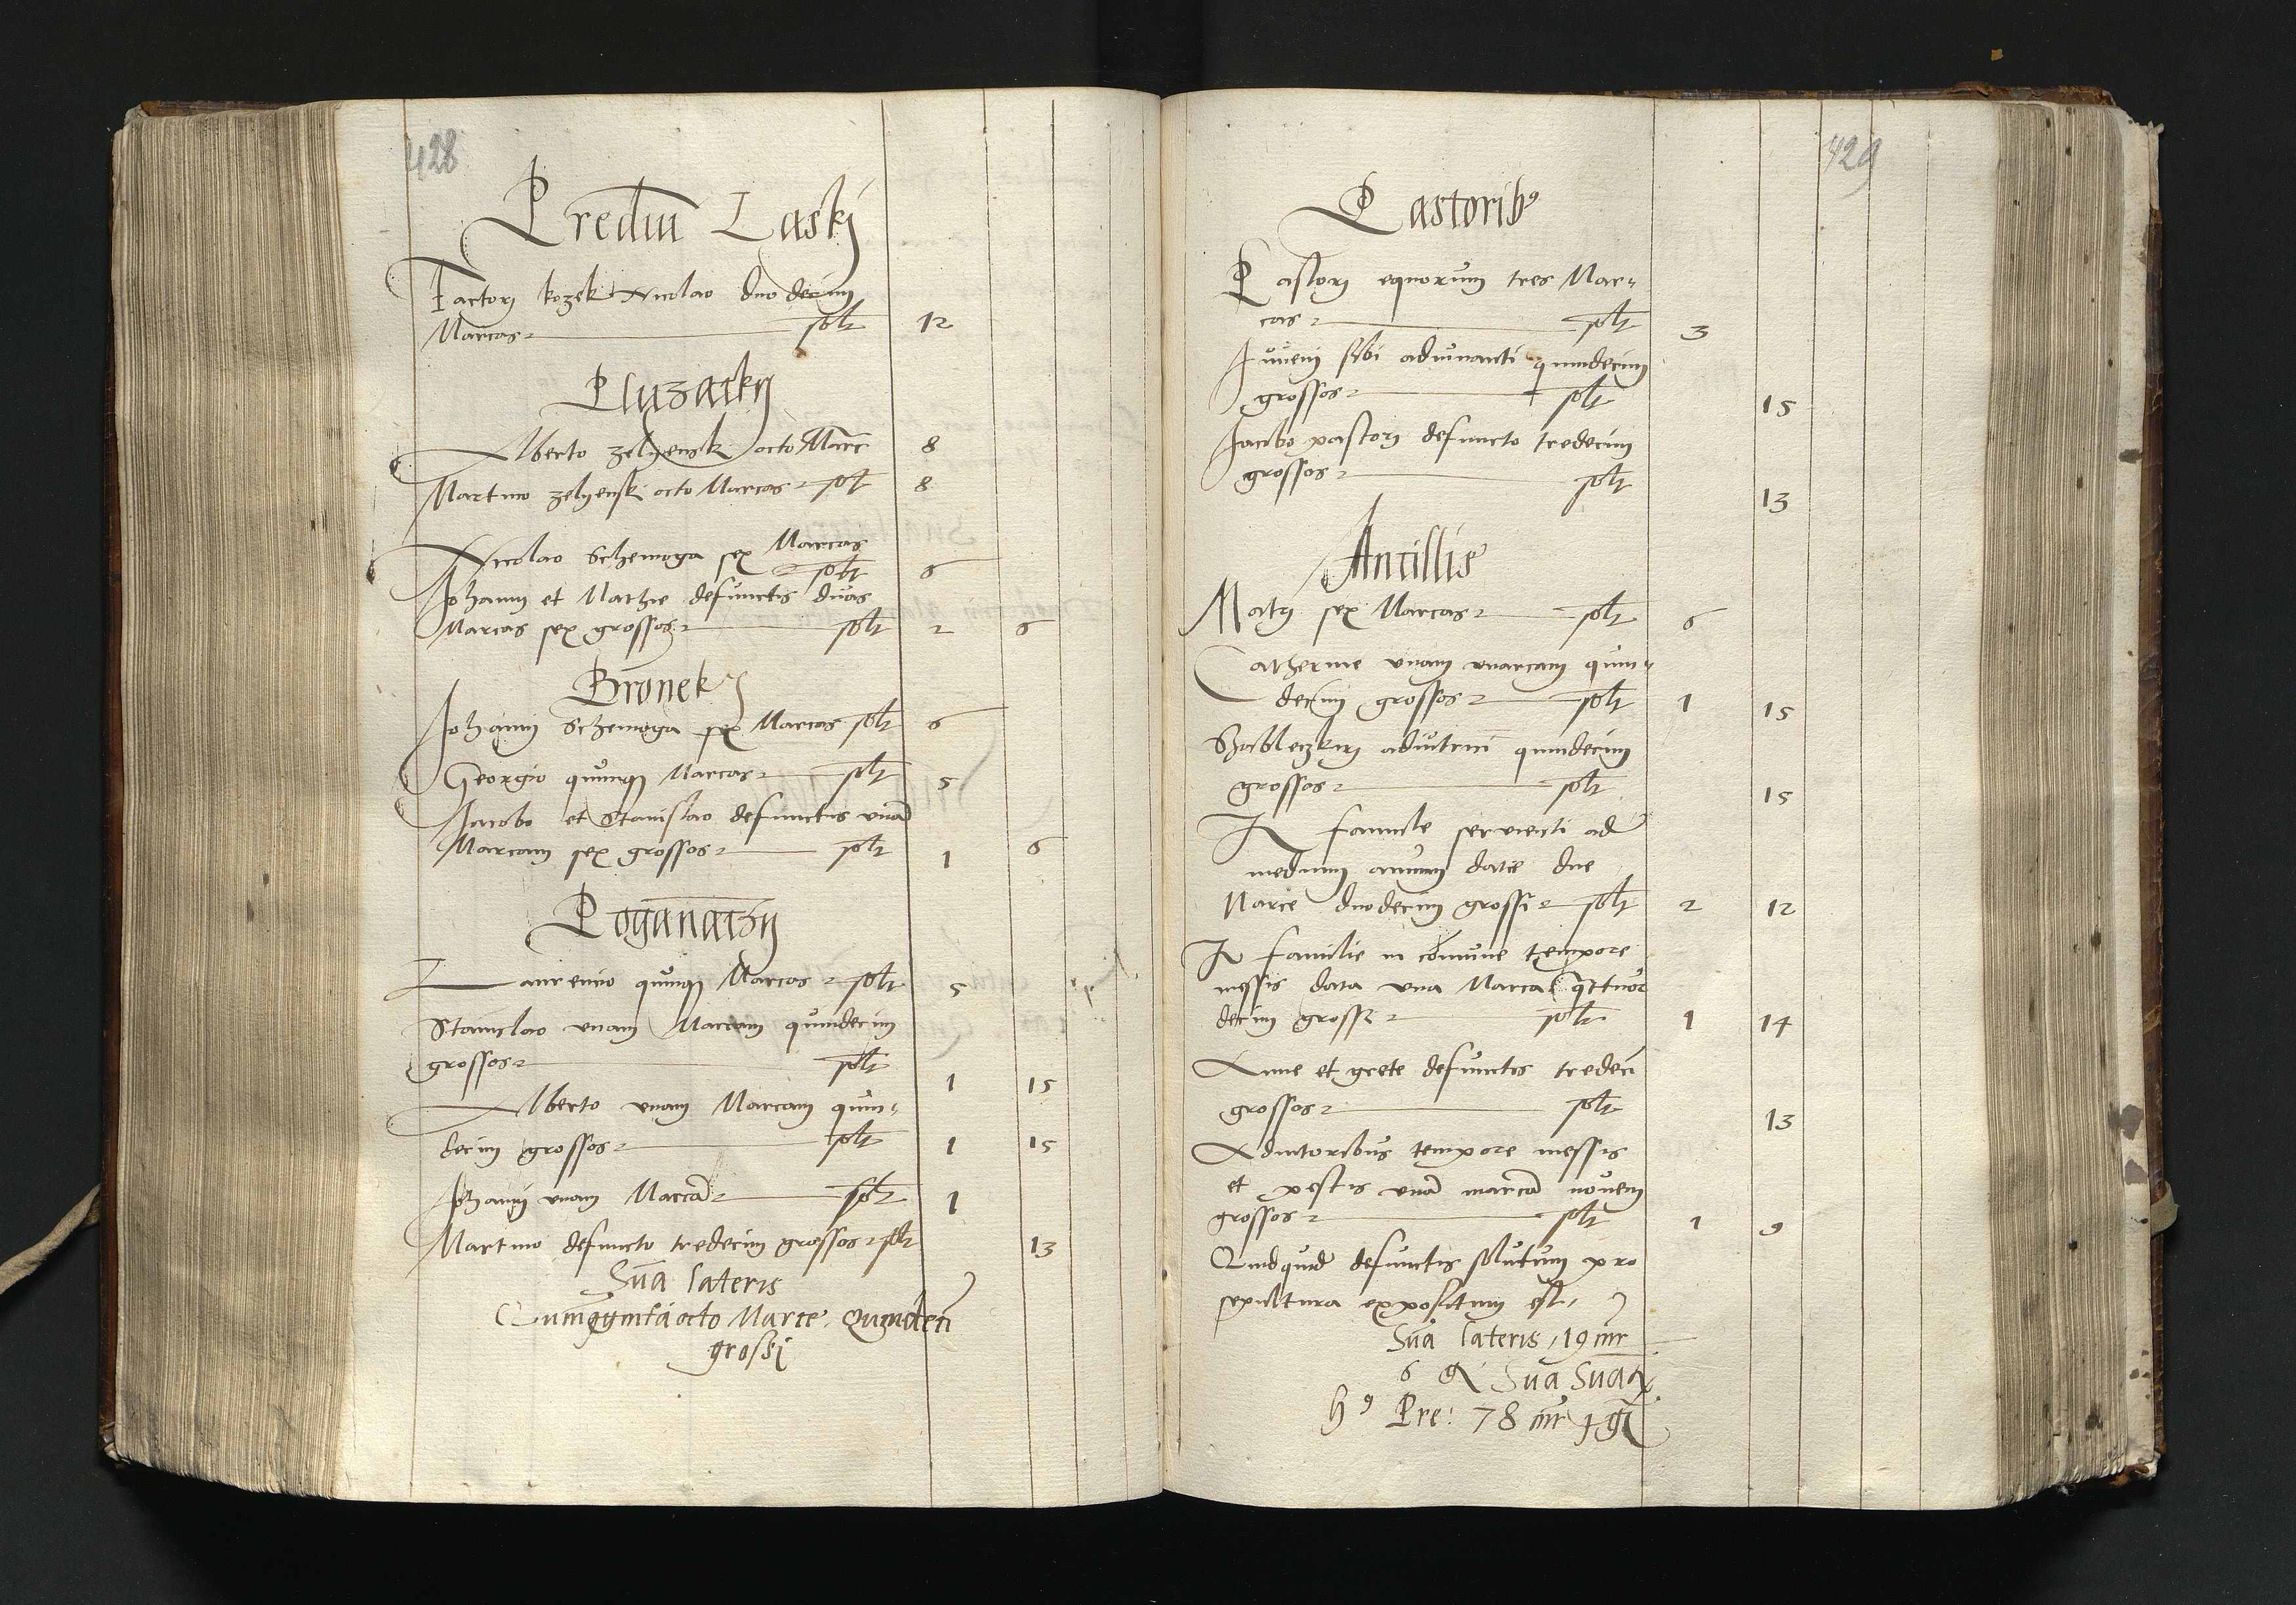 428
Prediū Laskj
Factorj kozek Nicolao duodecim
Marcas solt 12
Pluzatkÿ
Alberto zelyensk octo Marc 8
Martino zelyenski octo Marcas solt 8
Nicolao Schemoga sex Marcas
solt 6
Johanni et Mathie defunctis duas
Marcas sex grossos solt 2 6
Bronekÿ
Johanni Schemoga sex Marcas solt 6
Georgio quinqz Marcas solt 5
Jacobo et Stanislao defunctis vnā
Marcam sex grossos solt 1 6
Poganatzÿ
Laurencio quinqz Marcas solt 5
Stanislao vnam Marcam quindecim
grossos solt 1 15
Alberto vnam Marcam quin-
decim grossos solt 1 15
Johanni vnam Marcā solt 1
Martino defuncto tredecim grossos solt 13
Suā lateris
Quinqginta octo Marce Quindeci
grossi
429
Pastoribꝰ
Pastorj equorum tres Mar-
cas solt 3
Juueni sibi adiuuanti quindecim
grossos solt 15
Jacobo pastorj defuncto tredecim
grossos solt 13
Ancillis
Matÿ sex Marcas solt 6
Catherine vnam marcam quin-
decim grossos solt 1 15
adiutrici quindecim
grossos solt 15
It famule servienti ad
medium annum date due
Marce duodecim grossi solt 2 12
It familie in cōmune tempore
messis data vna Marca qttuor
decim grossi solt 1 14
Anne et grete defunctis tredeci
grossos solt 13
Adiutoribus tempore messis
et pestis vnā marcā nouem
grossos solt 1 9
Quidquid defunctis solutum pro
sepultura expositum est
Suā lateris 19 mr
6 gr Suā Suaꝝ
hꝰ Pre: 78 mr 1 gr